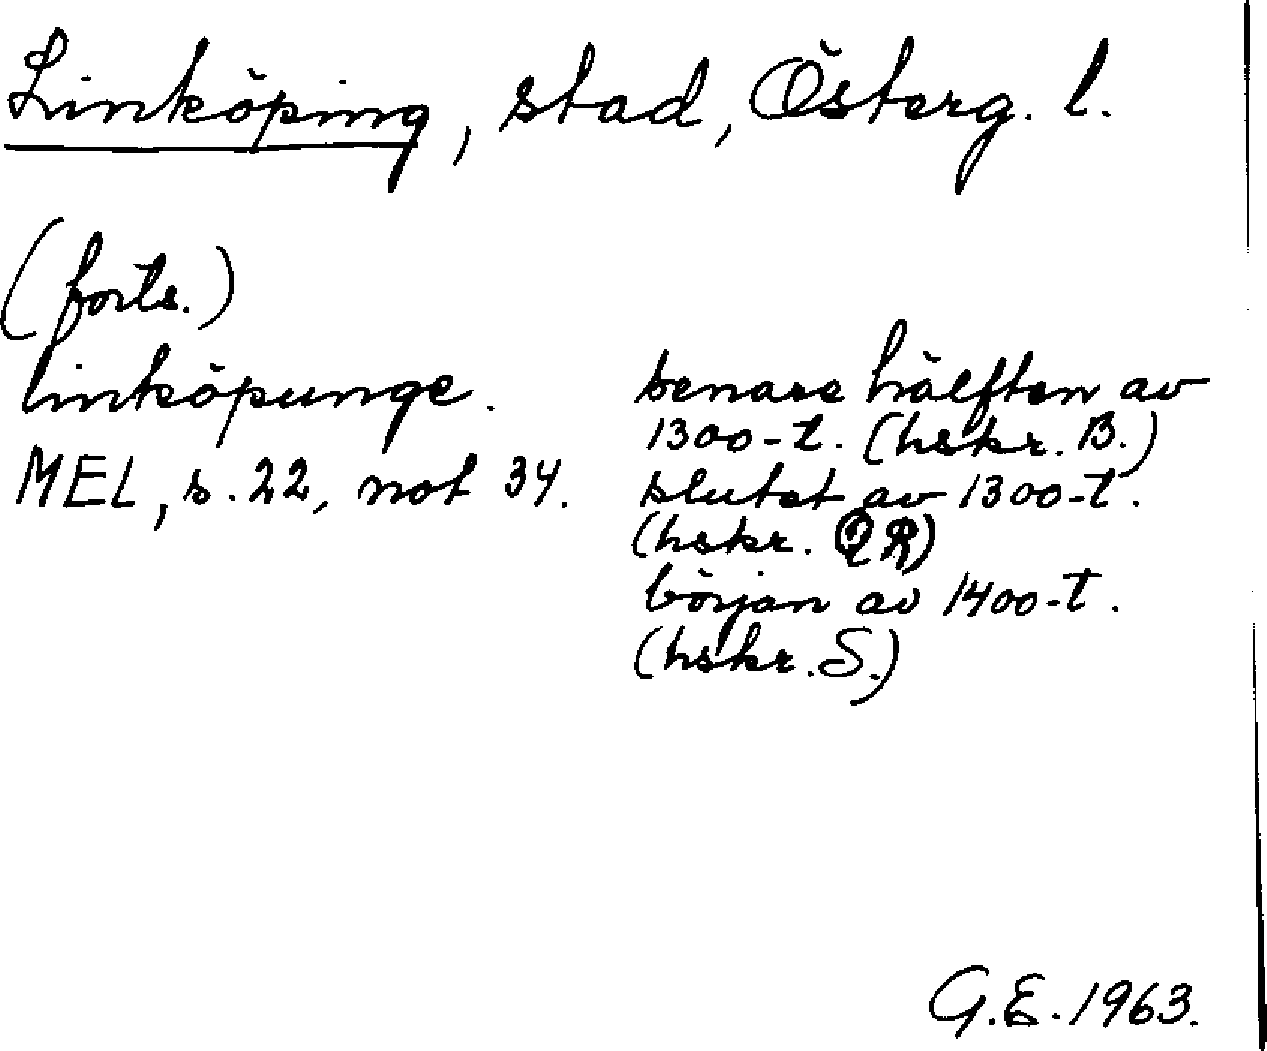 Linköping, stad, Österg. l.
(forts.)
linköpunge.
MEL, s. 22, not 34.
senare hälften av
1300-t. (hskr. B.)
slutet av 1300-t.
(hskr. QR)
början av 1400-t.
(hskr. S.)
G.E. 1963.